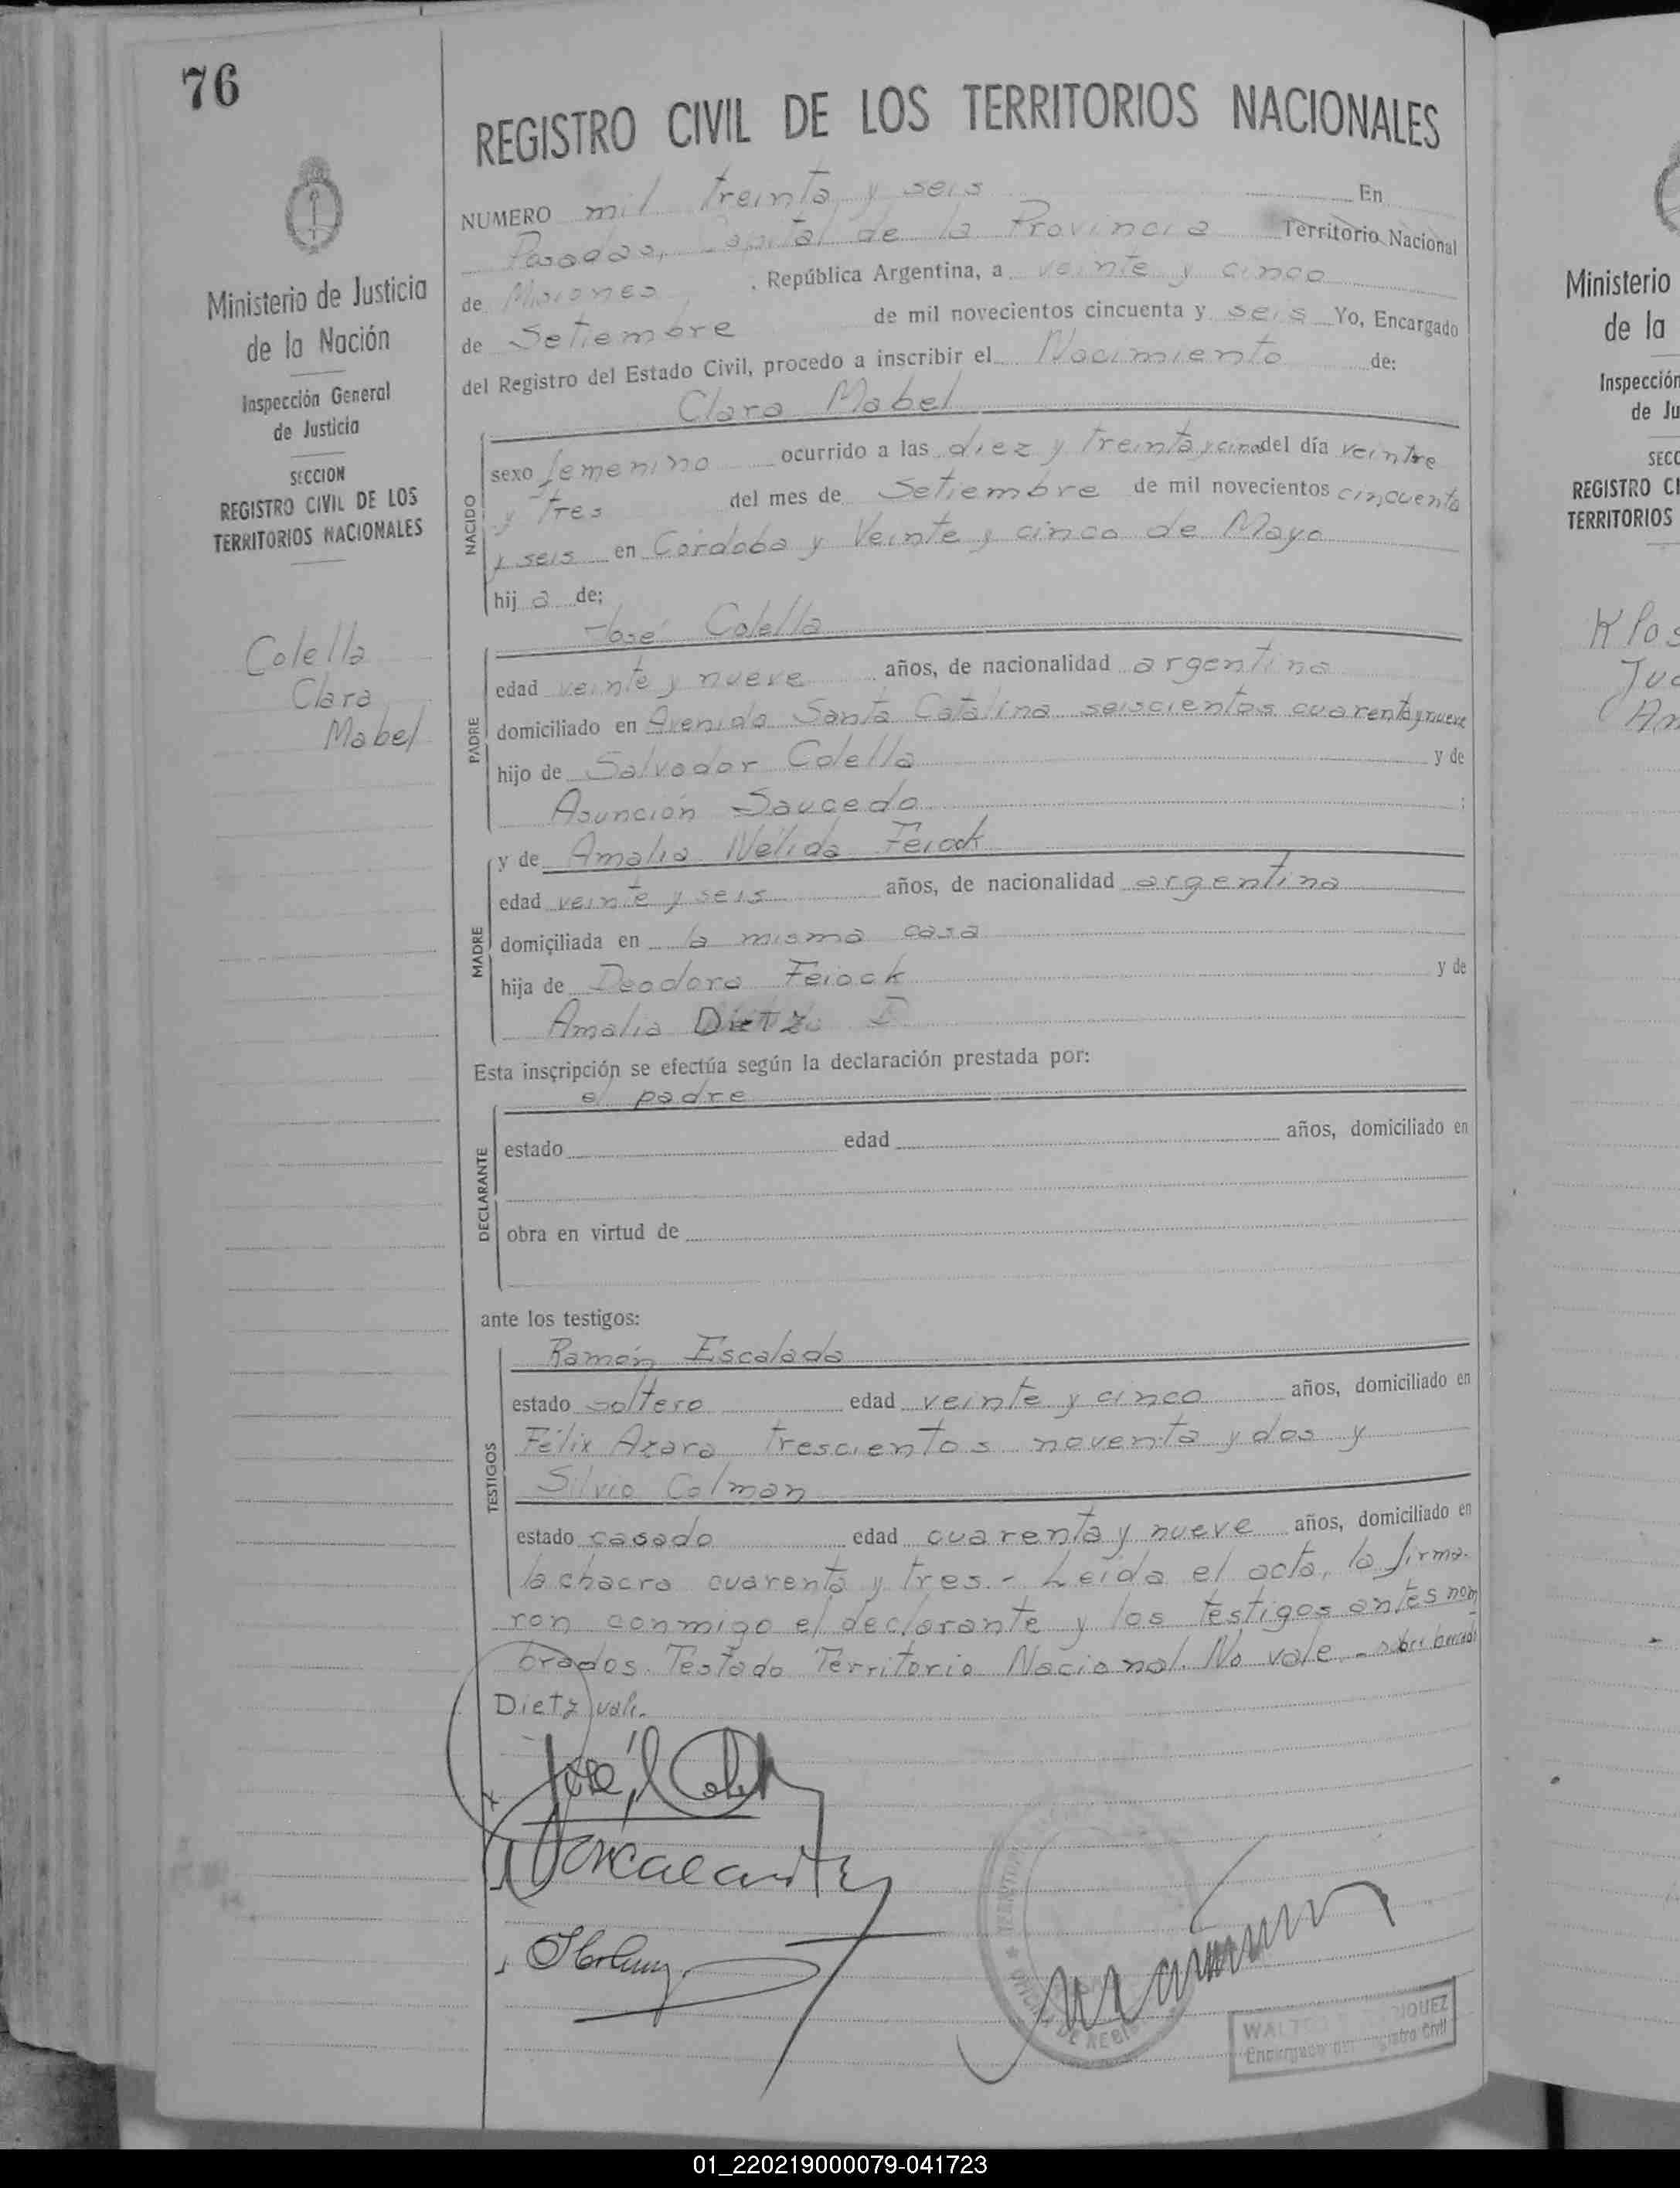 76
REGISTRO CIVIL DE LOS TERRITORIOS NACIONALES
NUMERO mil treinta y seis En
Posadas, Capital de la Provincia Territorio Nacional
de Misiones, República Argentina, a veinte y cinco
de Setiembre de mil novecientos cincuenta y seis Yo, Encargado
del Registro del Estado Civil, procedo a inscribir el Nacimiento de:
Clara Mabel
NACIDO
sexo femenino ocurrido a las diez y treinta y cinco del día veinte
y tres del mes de Setiembre de mil novecientos cincuenta
y seis en Córdoba y Veinte y cinco de Mayo
hija de:
José Colella
PADRE
edad veinte y nueve años, de nacionalidad argentina
domiciliado en Avenida Santa Catalina seiscientos cuarenta y nueve
hijo de Salvador Colella y de
Asunción Saucedo ;
MADRE
y de Amalia Nélida Feiock
edad veinte y seis años, de nacionalidad argentina
domiciliada en la misma casa
hija de Deodoro Feiock y de
Amalia Dietz
Esta inscripción se efectúa según la declaración prestada por:
el padre
DECLARANTE
estado edad años, domiciliado en
obra en virtud de
ante los testigos:
TESTIGOS
Ramón Escalada
estado soltero edad veinte y cinco años, domiciliado en
Félix Azara trescientos noventa y dos y
Silvio Colman
estado casado edad cuarenta y nueve años, domiciliado en
la chacra cuarenta y tres.- Leída el acta, la firma-
ron conmigo el declarante y los testigos antes nom
brados. Testado Territorio Nacional. No vale.- sobre borrado
Dietz vale.
José Colella
Ministerio de Justicia
de la Nación
Inspección General
de Justicia
SECCION
REGISTRO CIVIL DE LOS
TERRITORIOS NACIONALES
Colella
Clara
Mabel
WALTO
Encargado del Registro Civil
OFICINA DE REGIS
Ministerio
de la
Inspección
de Ju
SECC
REGISTRO CI
TERRITORIOS
Klos
01_220219000079-041723